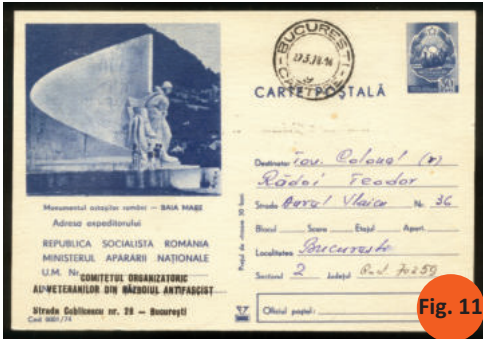 Monumentul ostașilor români – BAIA MARE
Adresa expeditorului
REPUBLICA SOCIALISTĂ ROMÂNIA
MINISTERUL APĂRĂRII NAȚIONALE
U.M. Nr.
COMITETUL ORGANIZATORIC
AL VETERANILOR DIN RĂZBOIUL ANTIFASCIST
Strada Cobilcescu nr. 28 – București
Cod 0001/74
BUCUREȘTI
CARTE POȘTALĂ
Destinatar Tov. Colonel (r)
Rădoi Teodor
Strada Aurel Vlaicu Nr. 36
Blocul Scara Etajul Apart.
Localitatea București
Sectorul 2 Județul 70259
Oficiul poștal:
Fig. 11